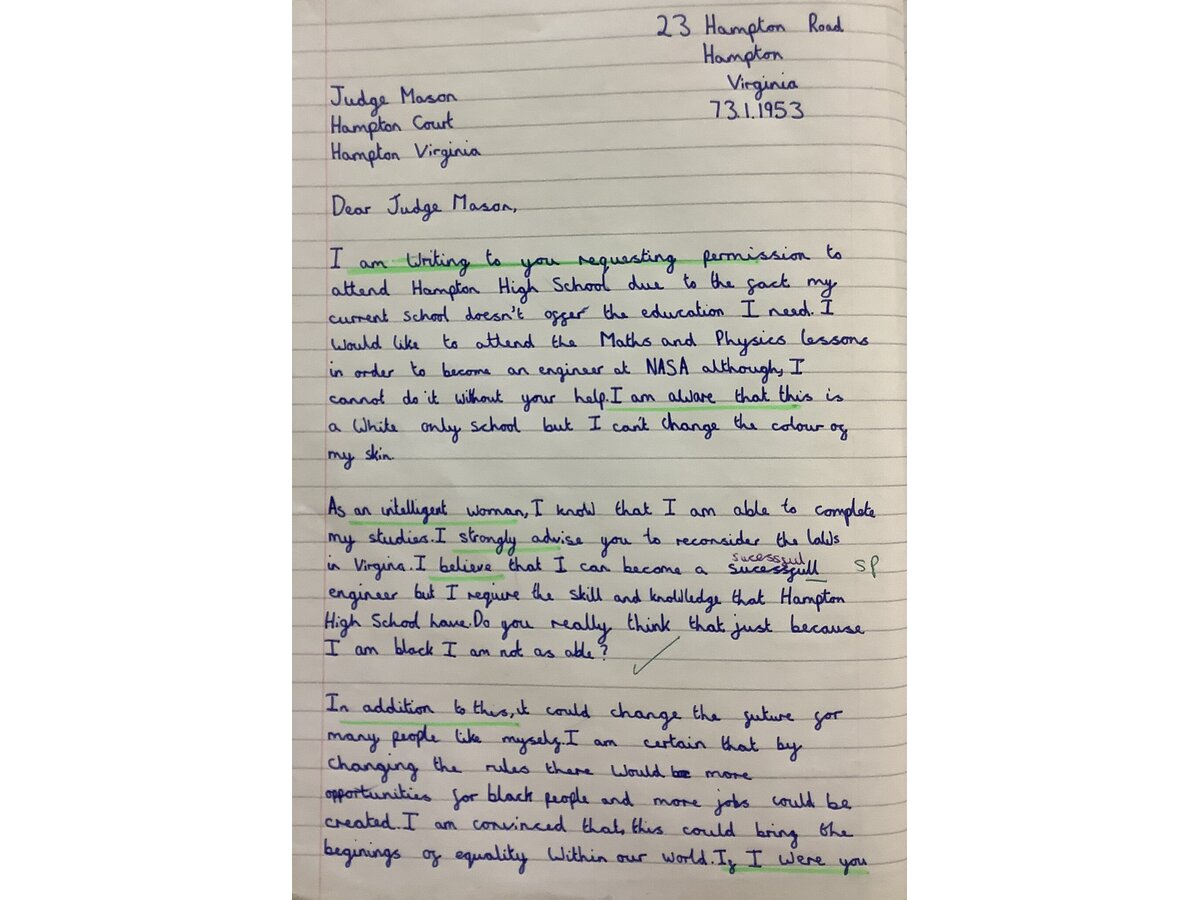 23 Hampton Road
Hampton
Virginia
73.1.1953
Judge Mason
Hampton Court
Hampton Virginia
Dear Judge Mason,
I am writing to you requesting permission to
attend Hampton High School due to the fact my
current school doesn't offer the education I need. I
would like to attend the Maths and Physics lessons
in order to become an engineer at NASA although, I
cannot do it without your help. I am aware that this is
a white only school but I can't change the colour of
my skin.
As an intelligent woman, I know that I am able to complete
my studies. I strongly advise you to reconsider the laws
in Virgina. I believe that I can become a sucessfull sucessful sp
engineer but I require the skill and knowledge that Hampton
High School have. Do you really think that just because
I am black I am not as able?
In addition to this, it could change the future for
many people like myself. I am certain that by
changing the rules there would be more
opportunities for black people and more jobs could be
created. I am convinced that, this could bring the
beginings of equality within our world. If I were you